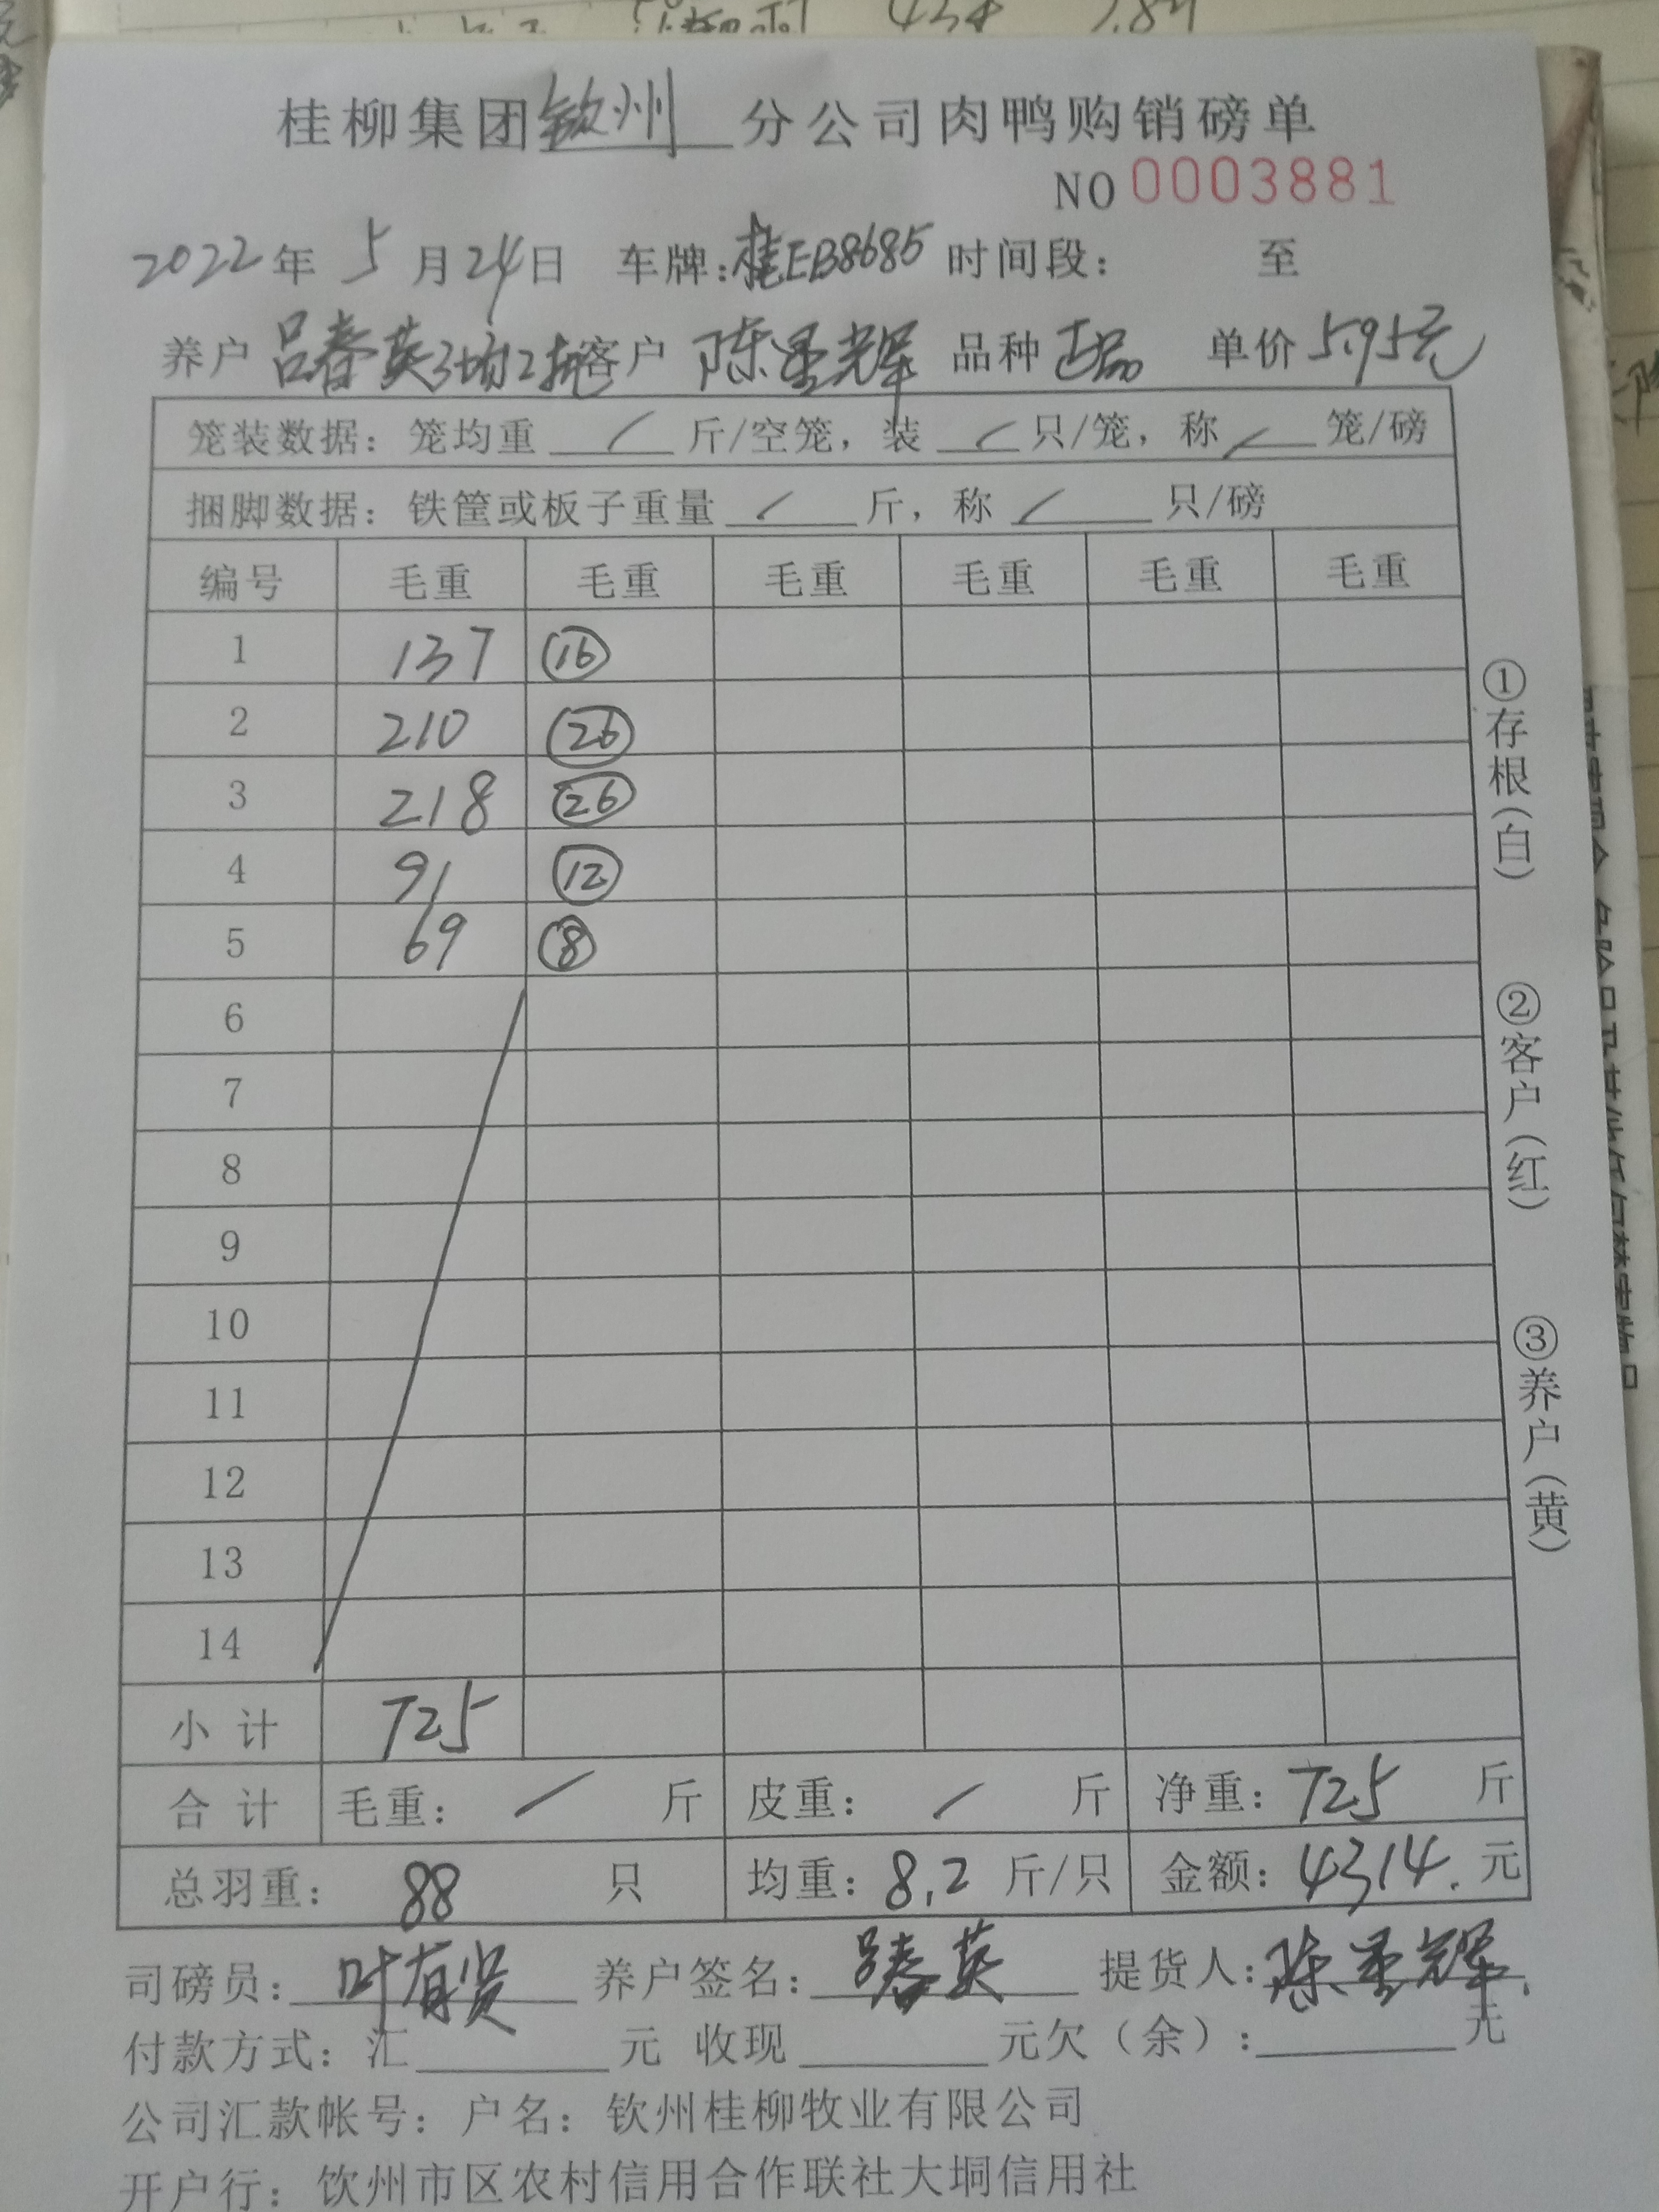 桂柳集团钦州分公司肉鸭购销磅单
NO 0003881
2022年 5月24日 车牌:桂EB8685 时间段: 至
养户 吕春英3场2批 客户 陈星辉 品种 正品 单价 5.95元
笼装数据: 笼均重 / 斤/空笼, 装 / 只/笼, 称 / 笼/磅
捆脚数据: 铁筐或板子重量 / 斤, 称 / 只/磅
编号 毛重 毛重 毛重 毛重 毛重 毛重
1 137 ⑯
2 210 ㉖
3 218 ㉖
4 91 ⑫
5 69 ⑧
6
7
8
9
10
11
12
13
14
小 计 725
合 计 毛重: / 斤 皮重: / 斤 净重: 725 斤
总羽重: 88 只 均重: 8.2 斤/只 金额: 4314. 元
司磅员: 叶有贤 养户签名: 吕春英 提货人: 陈星辉
付款方式: 汇 元 收现 元欠(余): 元
公司汇款帐号: 户名: 钦州桂柳牧业有限公司
开户行: 钦州市区农村信用合作联社大垌信用社
①存根(白)
②客户(红)
③养户(黄)